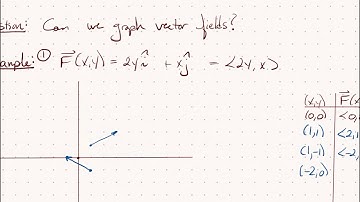 stion: Can we graph vector fields?
ample: ① F(x,y) = 2y i + x j = <2y, x>
(x,y) F(x
(0,0) <0,
(1,1) <2,1
(1,-1) <-2,
(-2,0)